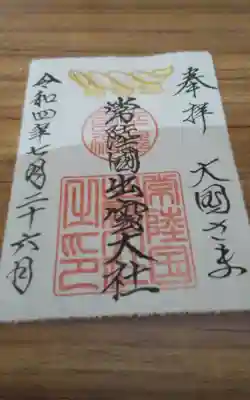 奉拝
大國さま
常陸國出雲大社
常陸国
之印
令和四年七月二十六日